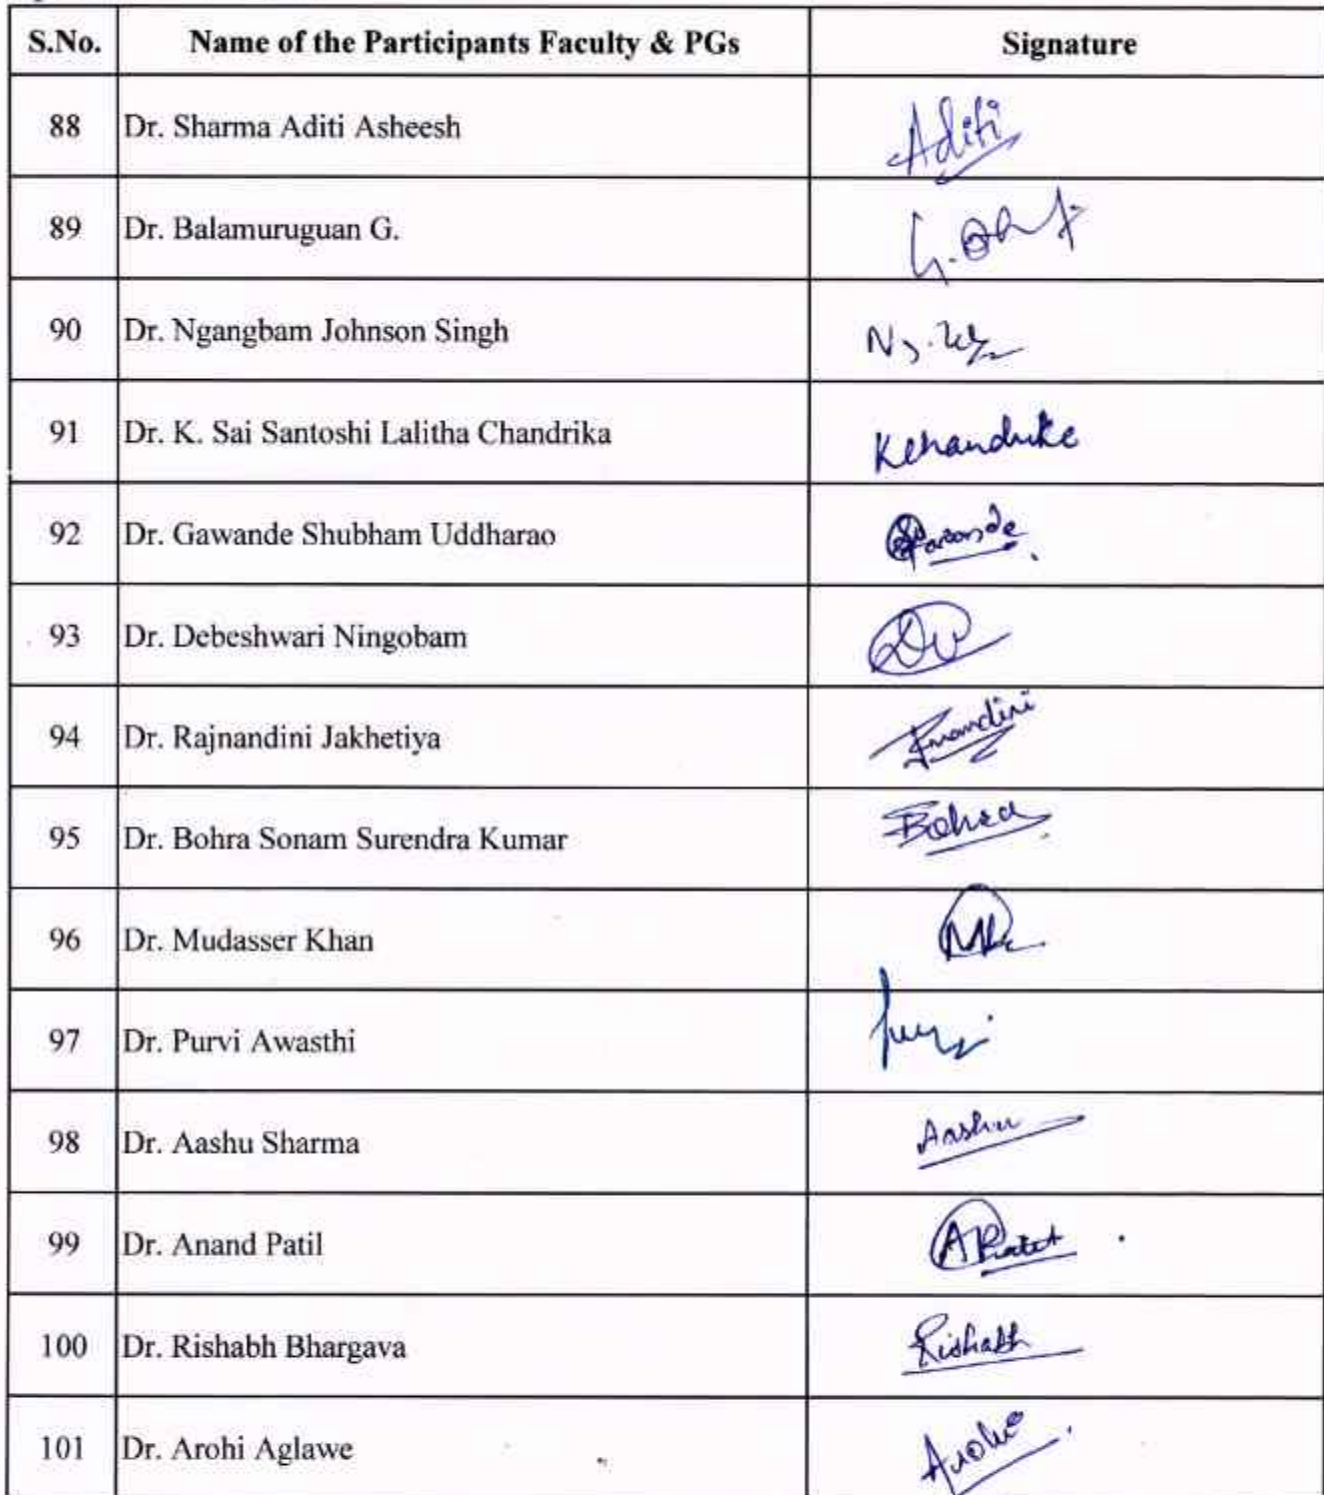 S.No. Name of the Participants Faculty & PGs Signature
88 Dr. Sharma Aditi Asheesh Aditi
89 Dr. Balamuruguan G.
90 Dr. Ngangbam Johnson Singh
91 Dr. K. Sai Santoshi Lalitha Chandrika
92 Dr. Gawande Shubham Uddharao
93 Dr. Debeshwari Ningobam
94 Dr. Rajnandini Jakhetiya
95 Dr. Bohra Sonam Surendra Kumar Bohra
96 Dr. Mudasser Khan
97 Dr. Purvi Awasthi
98 Dr. Aashu Sharma Aashu
99 Dr. Anand Patil
100 Dr. Rishabh Bhargava Rishabh
101 Dr. Arohi Aglawe Arohi